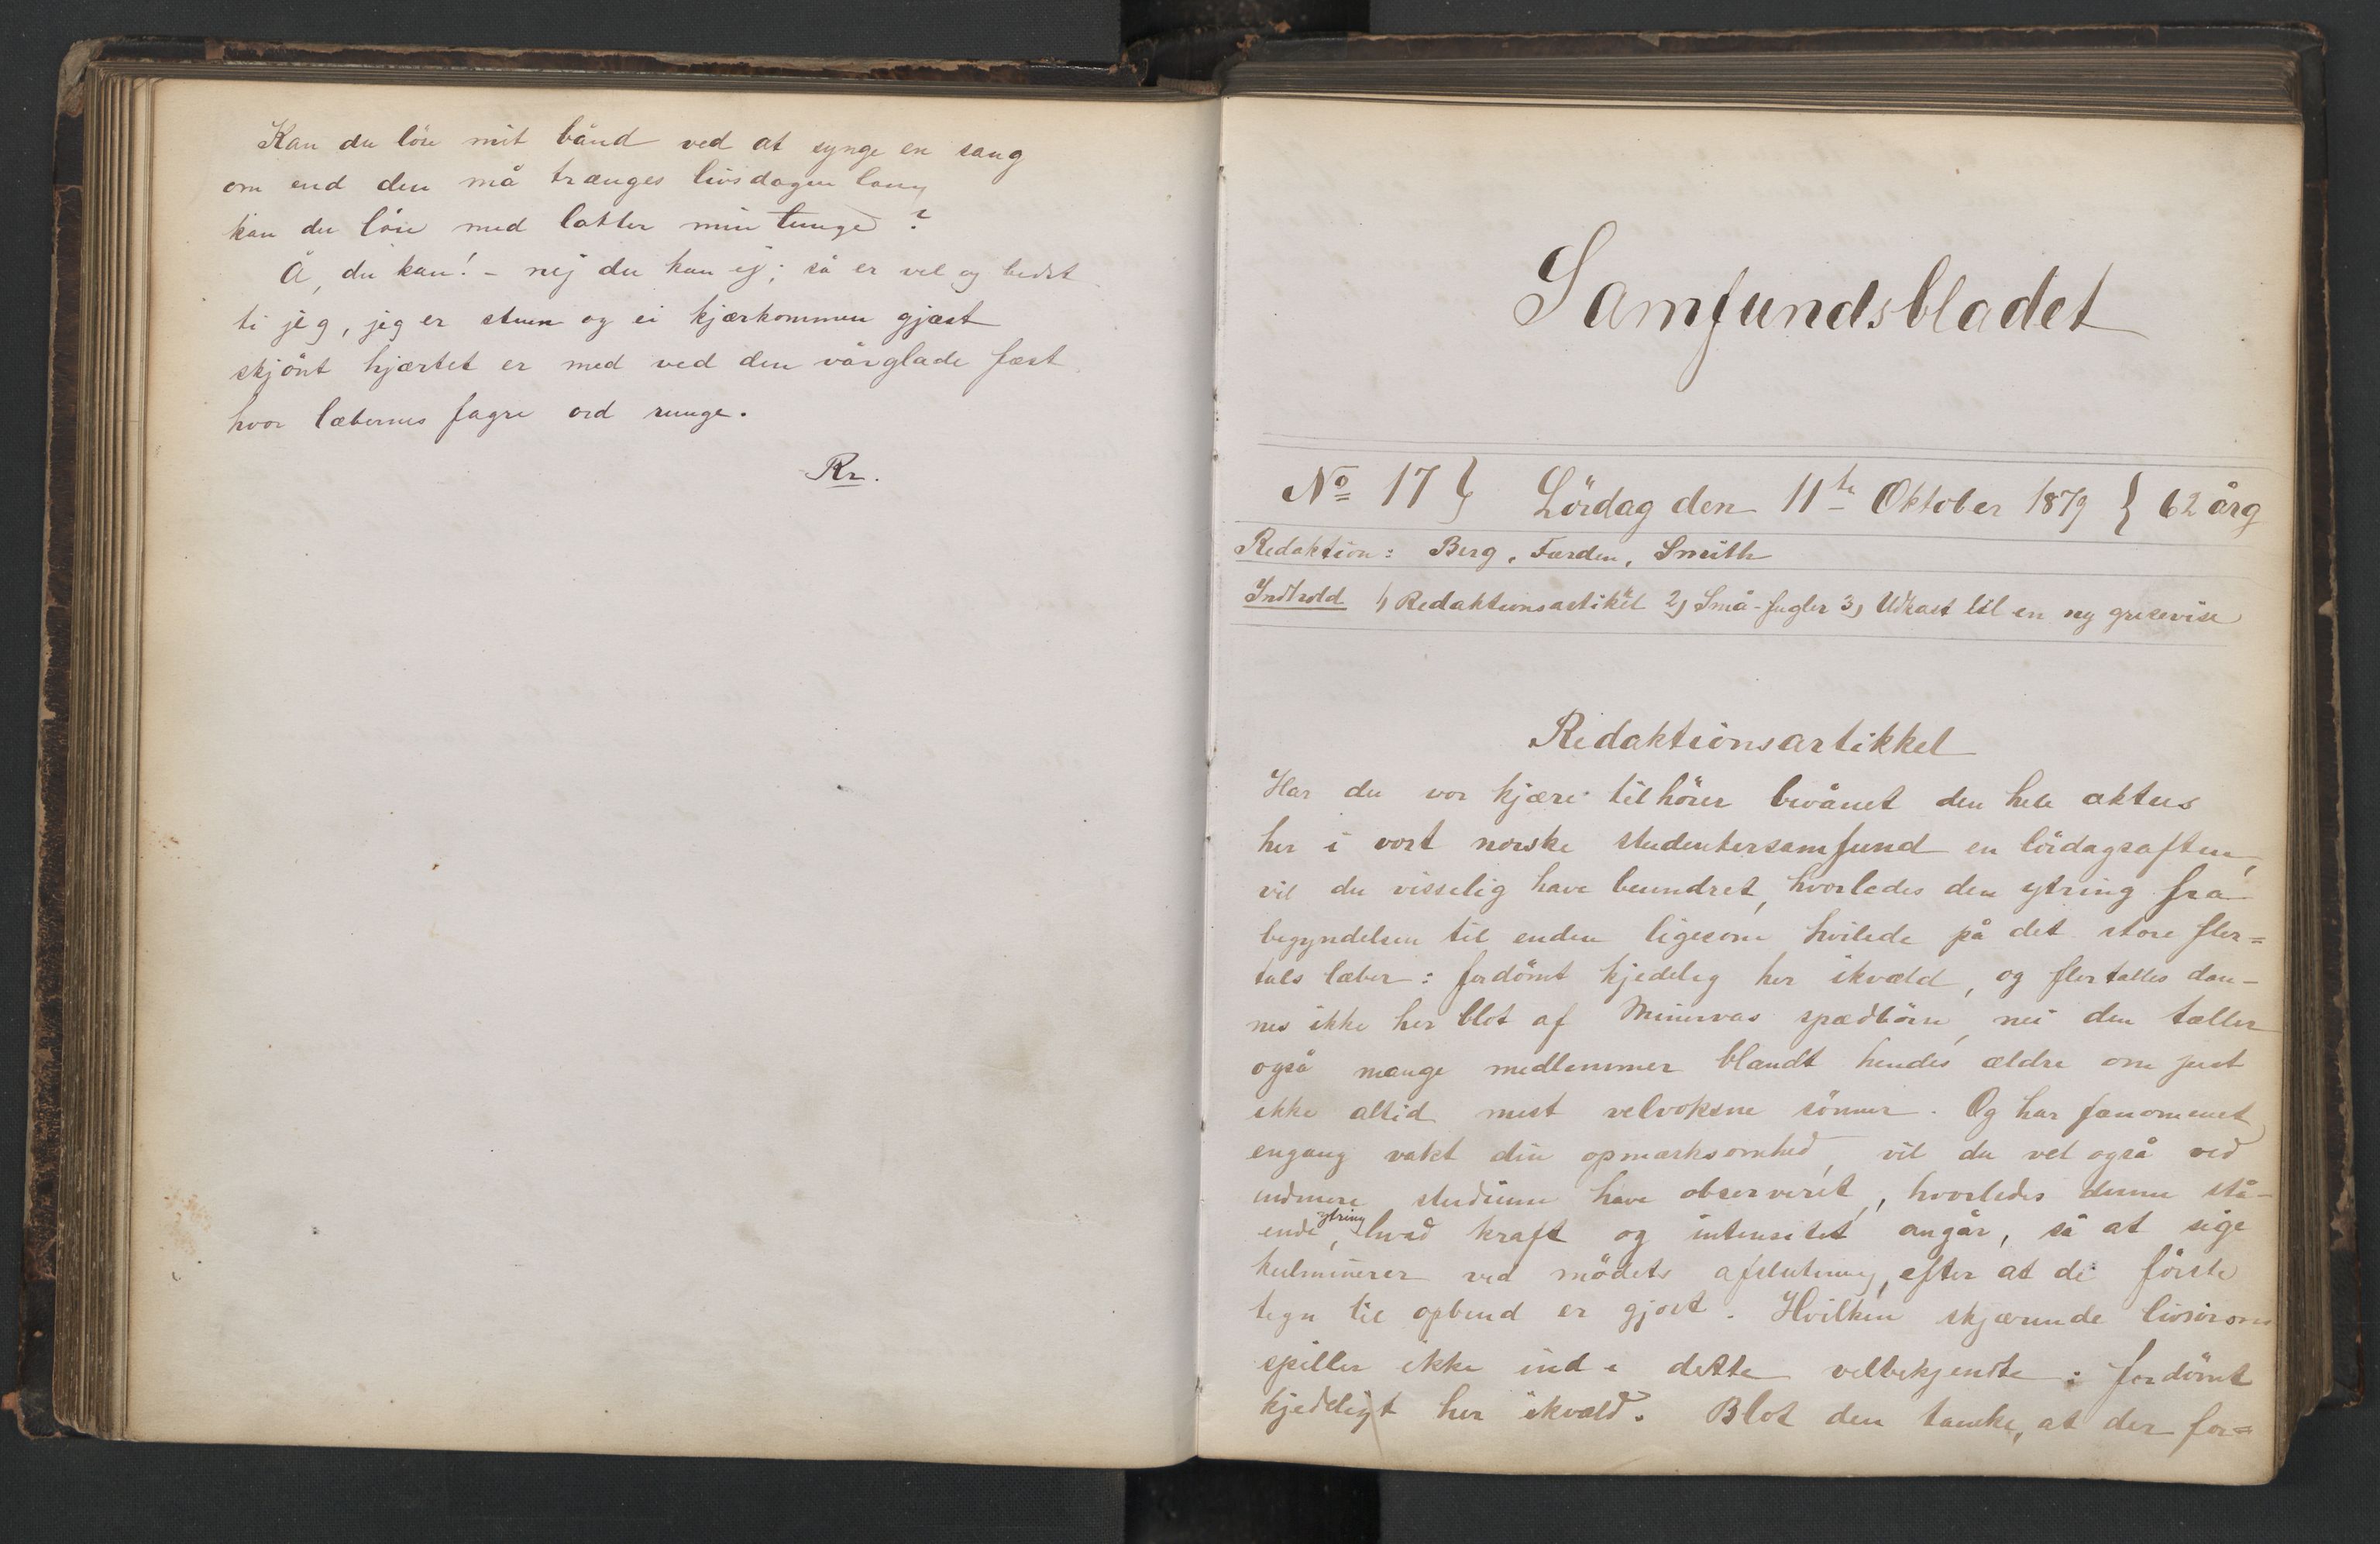 Kan du löse mit bånd ved at synge en sang
om end den må trænges livsdagen lang
kan du löse med latter min tunge?
Å, du kan! - nej du kan ej; så er vel og bedst
ti jeg, jeg er stum og ei kjærkommen gjæst
skjönt hjærtet er med ved den vårglade fæst
hvor læbernes fagre ord runge.
Rr.
Samfundsbladet
No 17 } Lördag den 11te Oktober 1879 { 62 årg
Redaktion: Berg, Færden, Smith
Indhold 1) Redaktionsartikel 2) Små-fugler 3) Udkast til en ny grisevise
Redaktionsartikkel
Har du vor kjære tilhörer bivånet den hele aktus
her i vort norske studentersamfund en lördagsaften,
vil du visselig have beundret, hvorledes den ytring fra
begyndelsen til enden ligesom hvilede på det store fler=
tals læber: fordömt kjedelig her ikvæld, og flertallet dan-
nes ikke her blot af Minervas spædbörn, nei den tæller
også mange medlemmer blandt hendes ældre om just
ikke altid mest velvoksne sönner. Og har fænomenet
engang vakt din opmærksomhed, vil du vel også ved
indmere studium have observeret, hvorledes denne stå-
ende ytring, hvad kraft og intensitet angår, så at sige
kulminerer ved mödets afslutning, efter at de förste
tegn til opbrud er gjort. Hvilken skjærende livsironi
spiller ikke ind i dette velbekjendte: fordömt
kjedeligt her ikvæld. Blot den tanke, at der for=